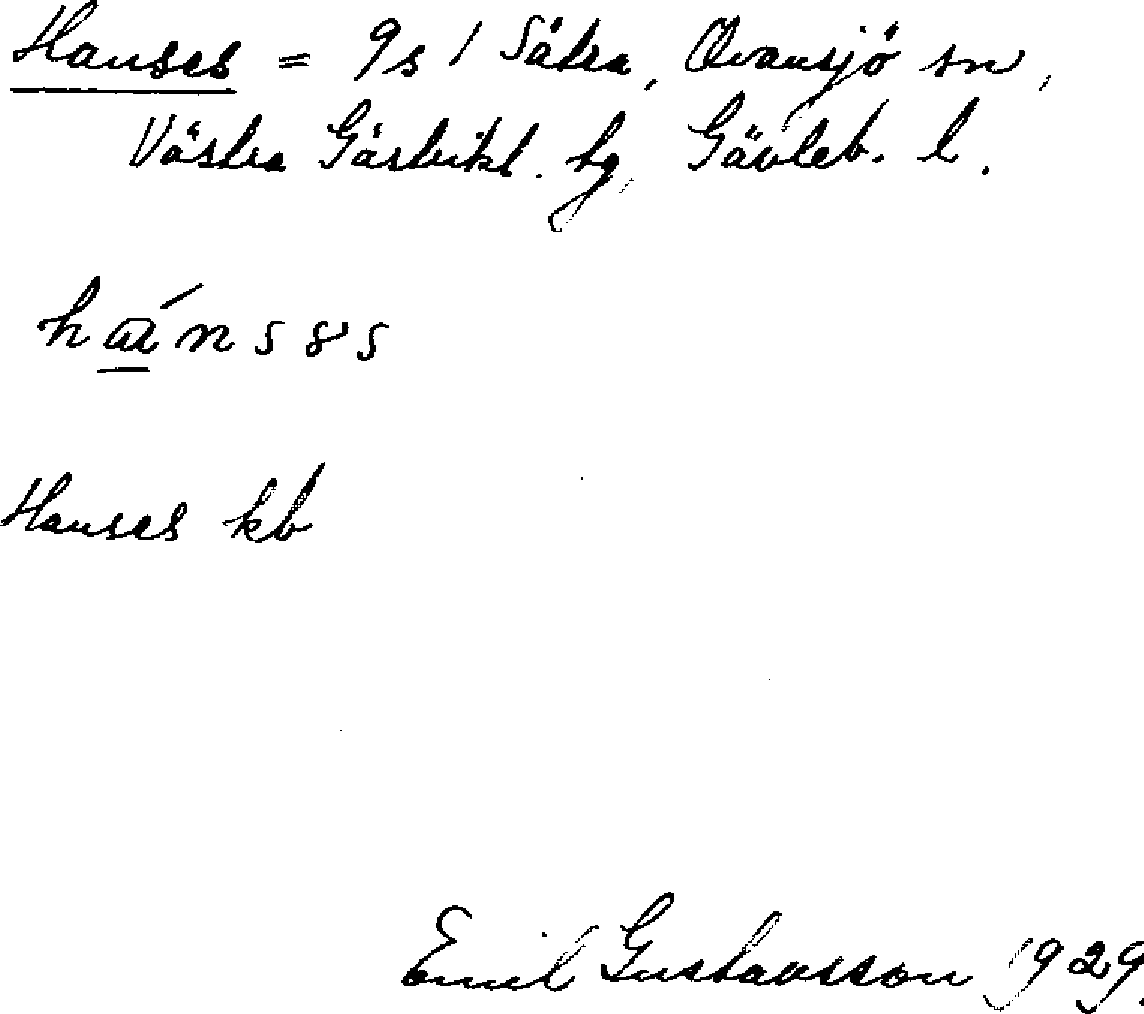 Hanses = 9s / Sätra, Ovansjö sn,
Västra Gästrikl. hg, Gävleb. l.
Hanses kb
Emil Gustavsson 1929.